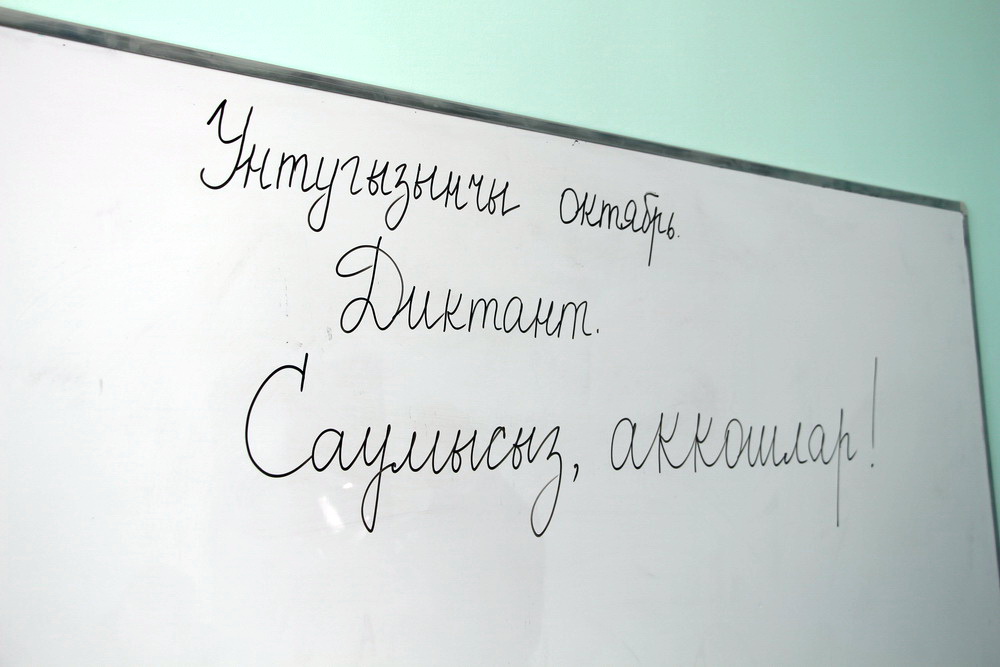 Унтугызынчы октябрь.
Диктант.
Саумысыз, аккошлар!